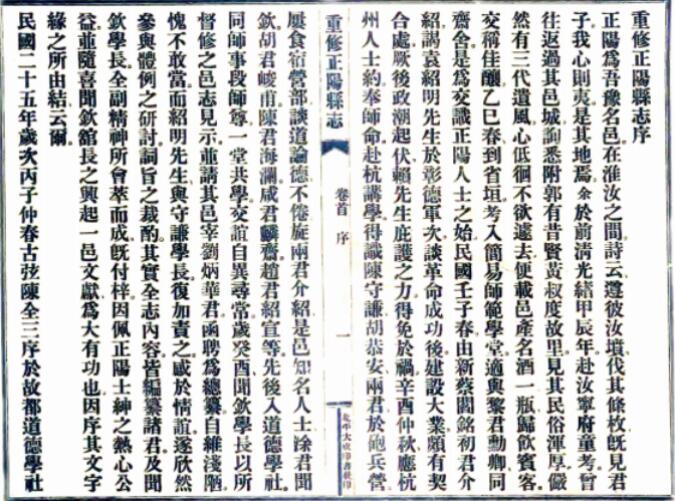 重修正陽縣志序
正陽爲吾豫名邑在淮汝之間詩云遵彼汝墳伐其條枚旣見君
子我心則夷是其地焉余於前淸光緖甲辰年赴汝寧府童考曾
往返過其邑城詢悉附郭有昔賢黃叔度故里見其民俗渾厚儼
然有三代遺風心低徊不欲遽去便載邑產名酒一瓶歸飮賓客
交稱佳釀乙巳春到省垣考入簡易師範學堂適與黎君勳卿同
齋舍是爲交識正陽人士之始民國壬子春由新蔡閻銘初君介
紹謁袁紹明先生於彰德軍次談革命成功後建設大業頗有契
合處厥後政潮起伏賴先生庇護之力得免於禍辛酉仲秋應杭
州人士約奉師命赴杭講學得識陳守謙胡恭安兩君於砲兵營
重修正陽縣志
卷首 序
一
屢食宿營部談道論德不倦旋兩君介紹是邑知名人士涂君聞
欽胡君峻甫陳君海瀾咸君麟齋趙君紹宣等先後入道德學社
同師事段師尊一堂共學交誼自異尋常歲癸酉聞欽學長以所
督修之邑志見示並請其邑宰劉炳華君函聘爲總纂自維淺陋
愧不敢當而紹明先生與守謙學長復加責之感於情誼遂欣然
參與體例之研討詞旨之裁酌其實全志內容皆編纂諸君及聞
欽學長全副精神所會萃而成旣付梓因佩正陽士紳之熱心公
益並隨喜聞欽舘長之興起一邑文獻爲大有功也因序其文字
緣之所由結云爾
民國二十五年歲次丙子仲春古弦陳全三序於故都道德學社